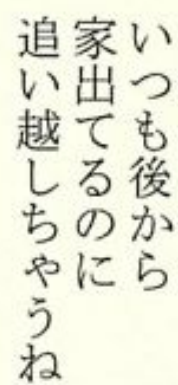 いつも後から
家出てるのに
追い越しちゃうね